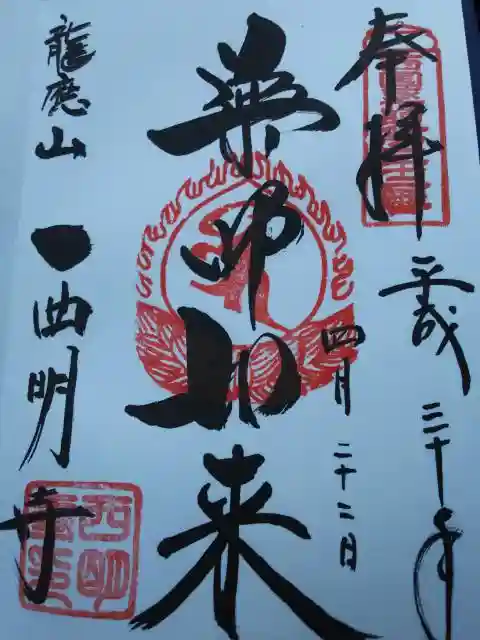 奉拝
平成三十年
四月二十二日
薬師如来
龍應山
西明寺